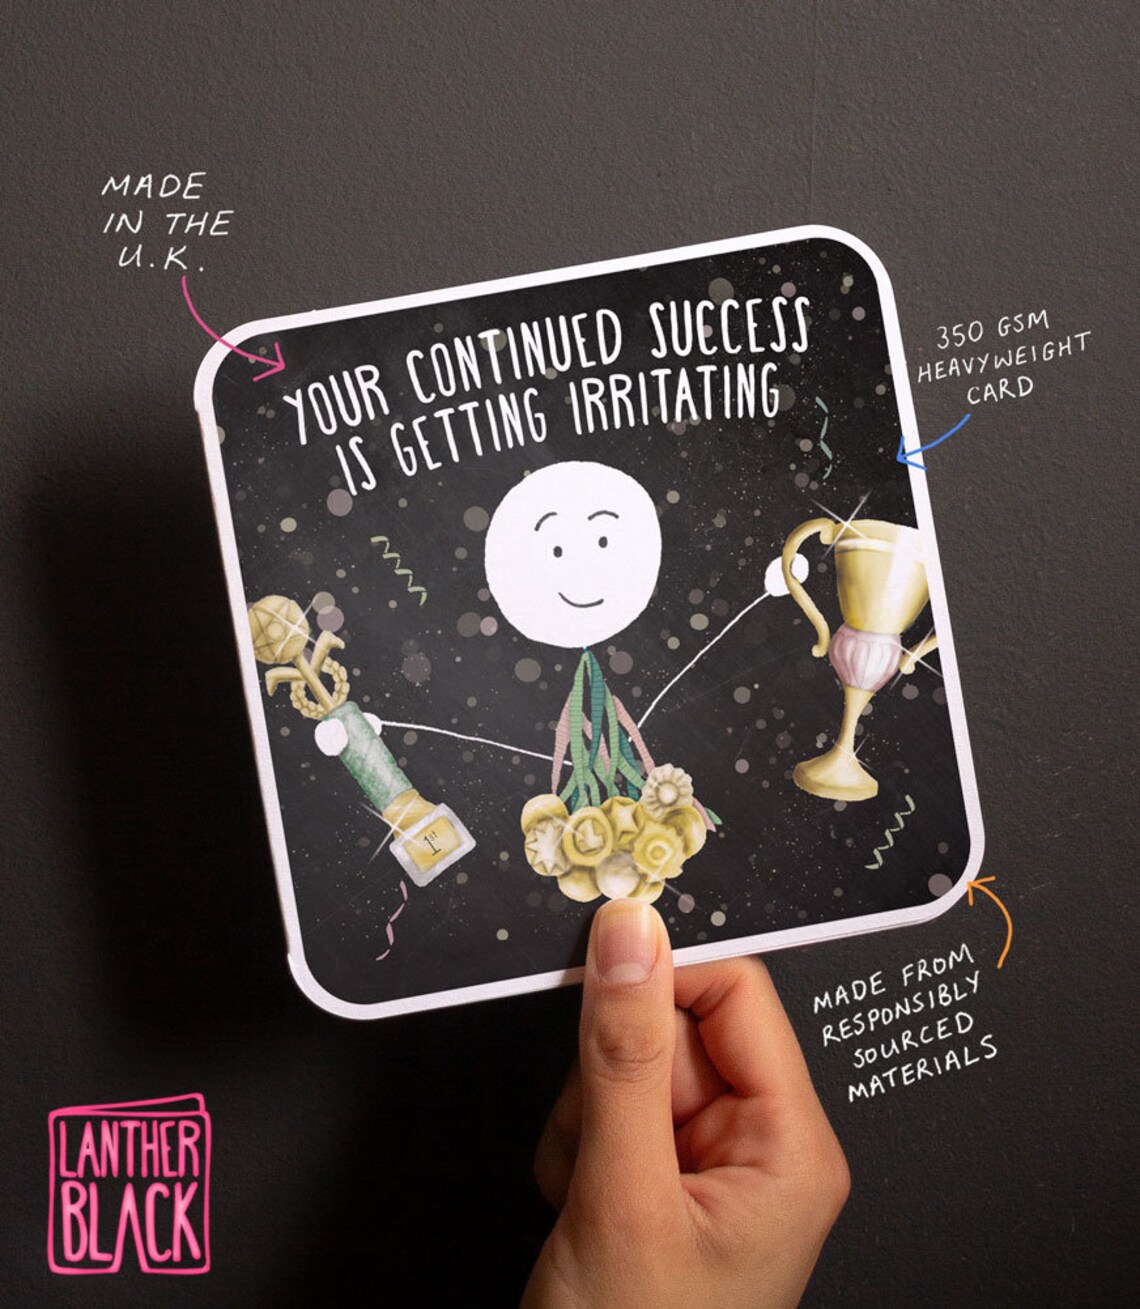 MADE
IN THE
U.K.
YOUR CONTINUED SUCCESS
IS GETTING IRRITATING
350 GSM
HEAVYWEIGHT
CARD
1st
MADE FROM
RESPONSIBLY
SOURCED
MATERIALS
LANTHER
BLACK